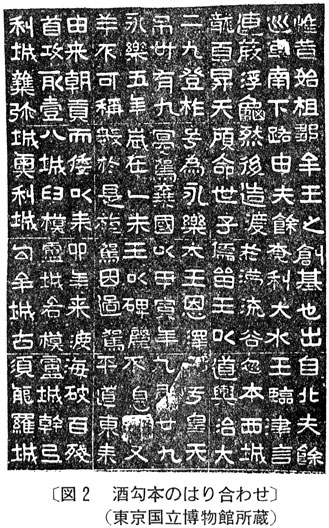 惟昔始祖鄒牟王之創基也出自北夫餘
巡車南下路由夫餘奄利大水王臨津言
連葭浮龜然後造渡於沸流谷忽本西城
龍首昇天顧命世子儒留王以道輿治大
二九登祚号為永樂太王恩澤于皇天
弔卅有九寔駕棄國以甲寅年九月廿九
永樂五年歳在乙未王以碑麗不息又
羊不可稱數於是旋駕因過駕平道東来
由来朝貢而倭以耒卯年来渡海破百殘
首攻取壹八城臼模盧城各模盧城幹弖
利城雜弥城奥利城勾牟城古須能羅城
〔図2 酒勾本のはり合わせ〕
(東京国立博物館所蔵)